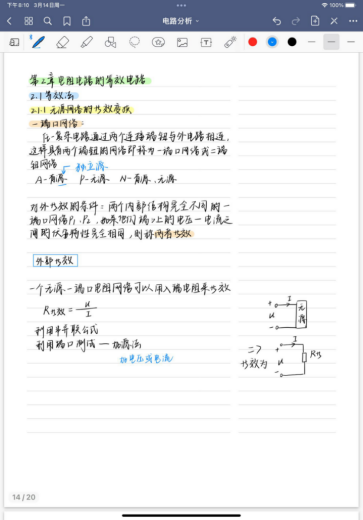 下午8:10 3月14日周一
100%
电路分析
第2章电阻电路的等效电路
2.1 等效法
2.1.1 无源网络的等效变换
一端口网络:
复杂电路通过两个连接端钮与外电路相连,
这样具有两个端钮的网络即称为一端口网络或二端
钮网络
A-有源 P-无源 N-有源、无源
对外等效的条件:两个内部结构完全不同的一
端口网络P₁、P₂,如果它们端口上的电压-电流之
间的伏安特性完全相同,则称两者等效
外部等效
一个无源一端口电阻网络可以用入端电阻来等效
R等效 = u/I
利用串并联公式
利用端口测试—加源法
加电压或电流
+ I
u
-
无源
=>
等效为
+ I
u
-
R等
14 / 20